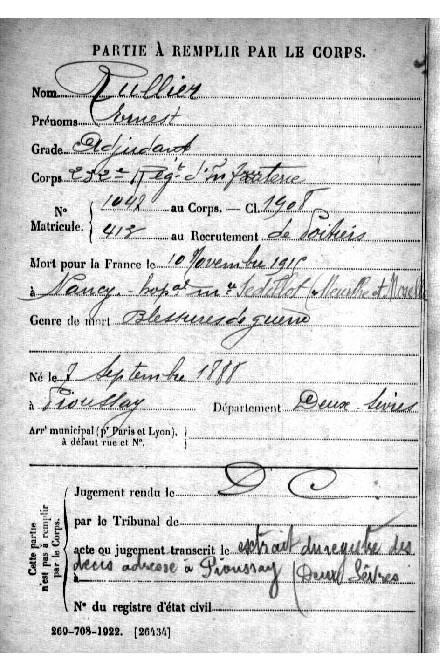 PARTIE À REMPLIR PAR LE CORPS.
Nom Rullier
Prénoms Ernest
Grade Adjudant
Corps 232e Régt d'Infanterie
N° Matricule. 1048 au Corps. — Cl. 1908
418 au Recrutement de Poitiers
Mort pour la France le 10 Novembre
à Nancy - hopal Sédillot (Meurthe et Moselle
Genre de mort Blessures de guerre
Né le 8 Septembre 1888
à Pioussay Département Deux-Sèvres
Arrt municipal (pr Paris et Lyon),
à défaut rue et N°.
Cette partie n'est pas à remplir par le Corps.
Jugement rendu le D C
par le Tribunal de
acte ou jugement transcrit le extrait du registre des
décès adressé à Pioussay (Deux Sèvres
N° du registre d'état civil
260-708-1922. [26434]